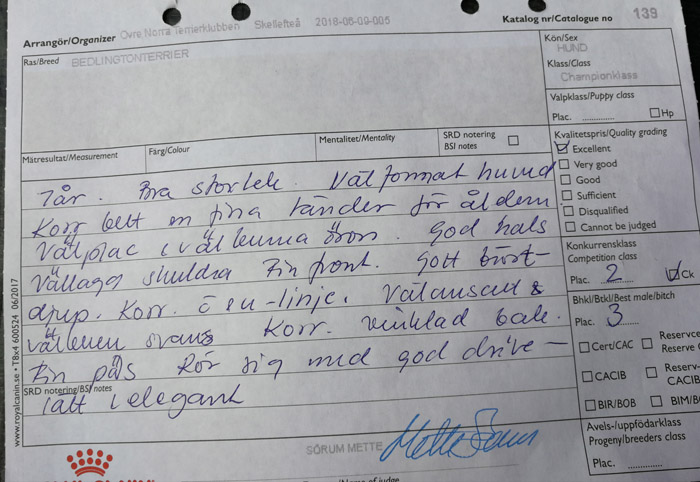 Arrangör/Organizer Övre Norra Terrierklubben Skellefteå 2018-06-09-005 Katalog nr/Catalogue no 139
Ras/Breed BEDLINGTONTERRIER
Kön/Sex
HUND
Klass/Class
Championklass
Valpklass/Puppy class
Plac. Hp
Mätresultat/Measurement Färg/Colour Mentalitet/Mentality SRD notering
BSI notes
Kvalitetspris/Quality grading
Excellent
Very good
Good
Sufficient
Disqualified
Cannot be judged
Konkurrensklass
Competition class
Plac. 2 Ck
Bhkl/Btkl/Best male/bitch
Plac. 3
Cert/CAC Reservce
Reserve
CACIB Reserv-
CACIB
BIR/BOB BIM/B
Avels-/uppfödarklass
Progeny/breeders class
Plac.
7 år. Bra storlek. Väl format huvud
Korr bett en fina tänder för åldern.
Välplac öron. God hals
Vällagd skuldra Fin front. Gott bröst-
djup. Korr. linje. Välansad &
svans Korr. vinklad bak.
Fin päls Rör sig med god drive -
SRD notering/BSI notes
lätt & elegant
SÖRUM METTE Mette Sörum
Name of judge
www.royalcanin.se • T8x4 600524 06/2017